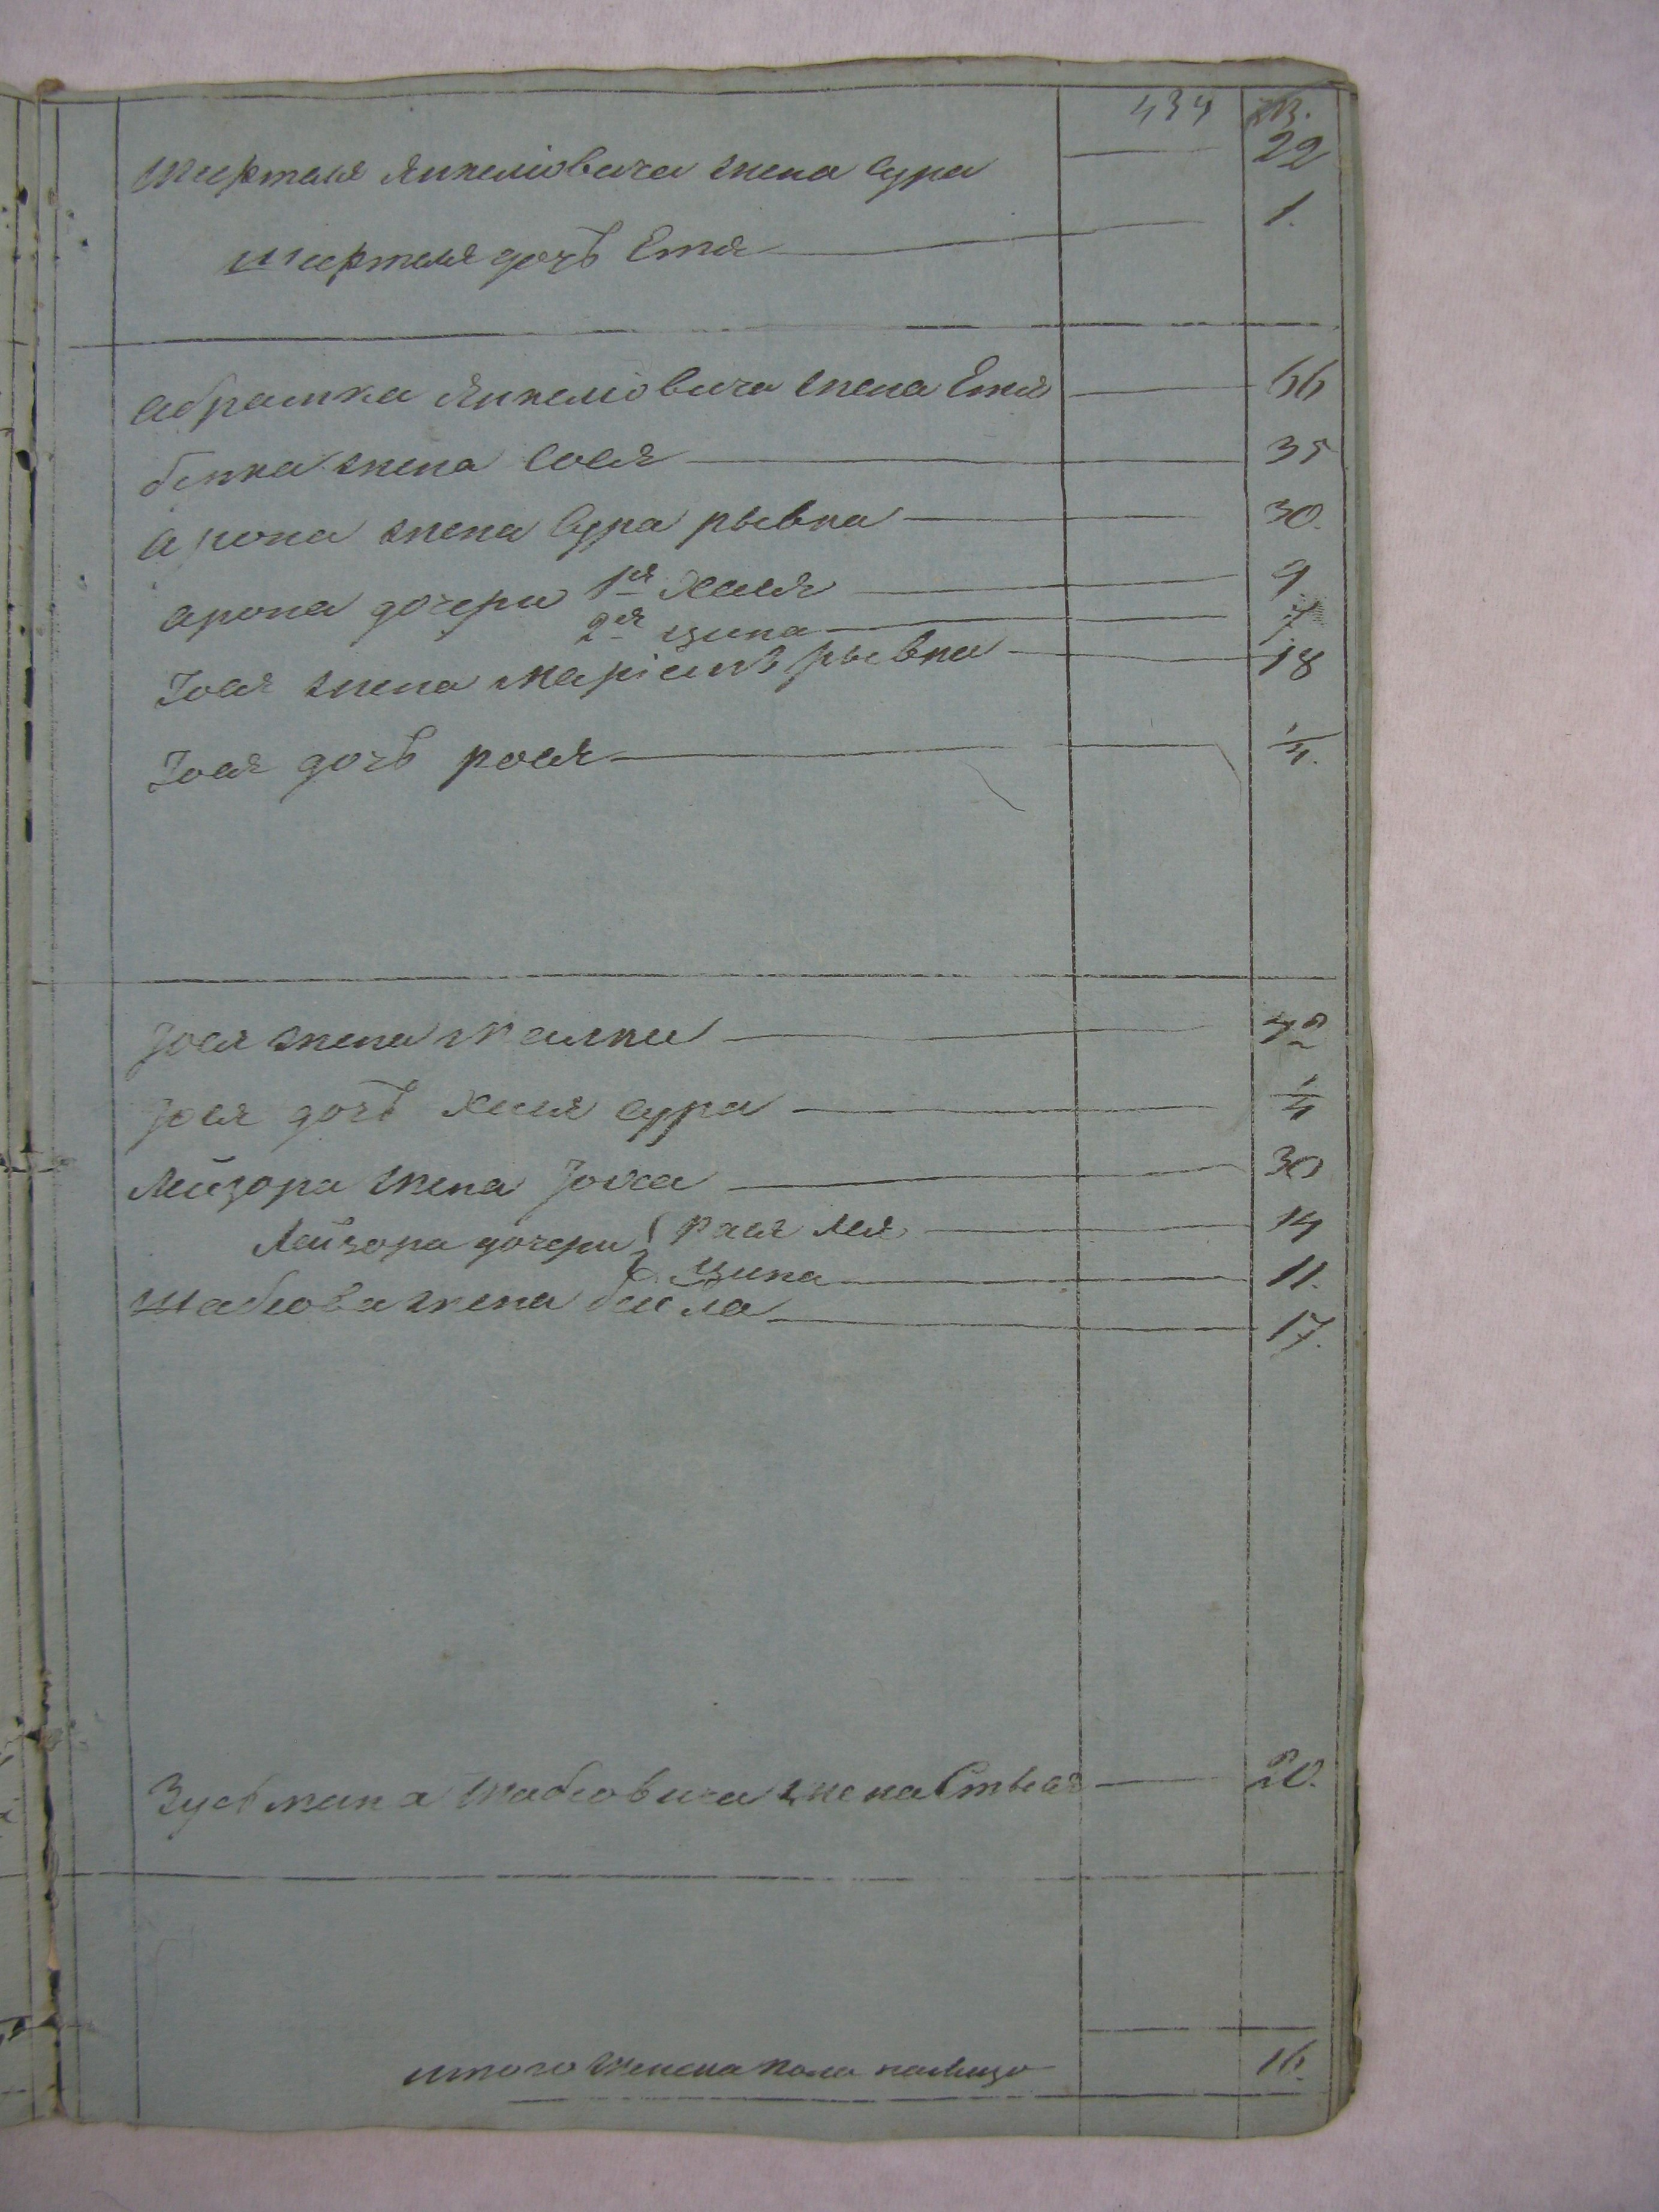 434
22
Шефтеля Янкеліовича жена Сура
Шефтеля дочь Етя 1.
абрамка Янкеліовича жена Етя 66
бенка жена Сося 35
арона жена Сура рывка 30.
арона дочери 1я Хася 9
2я ципа 7
Іося жена маріамъ рывка 18
Іося дочь рося 1/4.
Іося жена малка
Іося дочь Хася сура 1/4
Лейзора жена Іоха 30
Лейзора дочери Рася Лея 14
Ципа 11.
Шабсова жена бейла 17.
Зусьмана Шабсовича жена Стыся 20.
итого женска пола налицо 16.